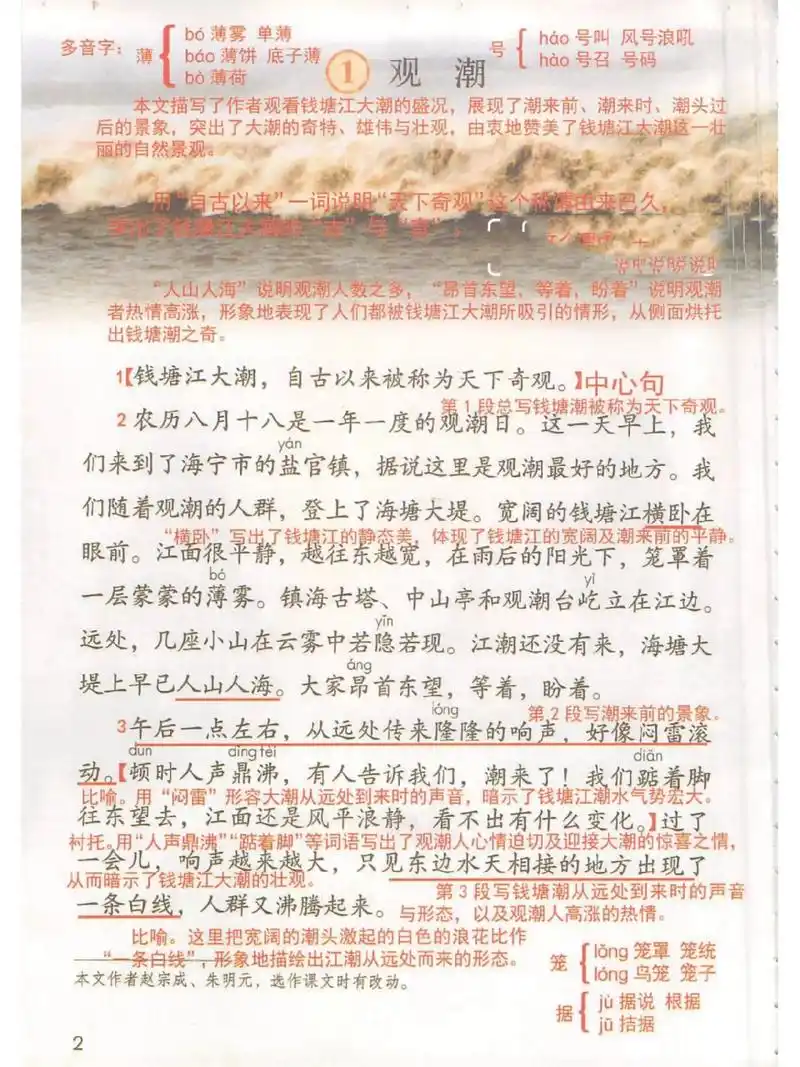 多音字：薄{bó 薄雾 单薄
báo 薄饼 底子薄
bò 薄荷
号{háo 号叫 风号浪吼
hào 号召 号码
1 观潮
本文描写了作者观看钱塘江大潮的盛况，展现了潮来前、潮来时、潮头过
后的景象，突出了大潮的奇特、雄伟与壮观，由衷地赞美了钱塘江大潮这一壮
丽的自然景观。
用“自古以来”一词说明“天下奇观”这个称谓由来已久，
“人山人海”说明观潮人数之多，“昂首东望，等着，盼着”说明观潮
者热情高涨，形象地表现了人们都被钱塘江大潮所吸引的情形，从侧面烘托
出钱塘潮之奇。
1【钱塘江大潮，自古以来被称为天下奇观。】中心句
第1段总写钱塘潮被称为天下奇观。
2 农历八月十八是一年一度的观潮日。这一天早上，我
yán
们来到了海宁市的盐官镇，据说这里是观潮最好的地方。我
们随着观潮的人群，登上了海塘大堤。宽阔的钱塘江横卧在
“横卧”写出了钱塘江的静态美，体现了钱塘江的宽阔及潮来前的平静。
眼前。江面很平静，越往东越宽，在雨后的阳光下，笼罩着
bó yì
一层蒙蒙的薄雾。镇海古塔、中山亭和观潮台屹立在江边。
yǐn
远处，几座小山在云雾中若隐若现。江潮还没有来，海塘大
áng
堤上早已人山人海。大家昂首东望，等着，盼着。
lóng 第2段写潮来前的景象。
3 午后一点左右，从远处传来隆隆的响声，好像闷雷滚
dùn dǐng fèi diǎn
动。【顿时人声鼎沸，有人告诉我们，潮来了！我们踮着脚
比喻。用“闷雷”形容大潮从远处到来时的声音，暗示了钱塘江潮水气势宏大。
往东望去，江面还是风平浪静，看不出有什么变化。】过了
衬托。用“人声鼎沸”“踮着脚”等词语写出了观潮人心情迫切及迎接大潮的惊喜之情，
一会儿，响声越来越大，只见东边水天相接的地方出现了
从而暗示了钱塘江大潮的壮观。
第3段写钱塘潮从远处到来时的声音
一条白线，人群又沸腾起来。
与形态，以及观潮人高涨的热情。
比喻。这里把宽阔的潮头激起的白色的浪花比作
“一条白线”，形象地描绘出江潮从远处而来的形态。
本文作者赵宗成、朱明元，选作课文时有改动。
笼{lǒng 笼罩 笼统
lóng 鸟笼 笼子
据{jù 据说 根据
jū 拮据
2